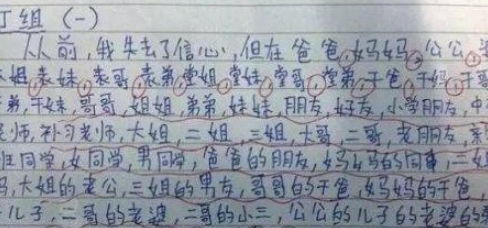 丁组（一）
从前，我失去了信心，但在爸爸，妈妈，公公，
姐，表妹，表哥，表弟，堂姐，堂妹，堂哥，堂弟，干爸，干妈，干哥
弟，干妹，哥哥，姐姐，弟弟，妹妹，朋友，好友，小学朋友，中
老师，补习老师，大姐，二姐，三姐，大哥，二哥，老朋友，亲
班同学，女同学，男同学，爸爸的朋友，妈妈的同事，三
妈，大姐的老公，三姐的男友，哥哥的干爸，妈妈的干爸，
儿子，二哥的老婆，二哥的小三，公公的儿子的老婆的